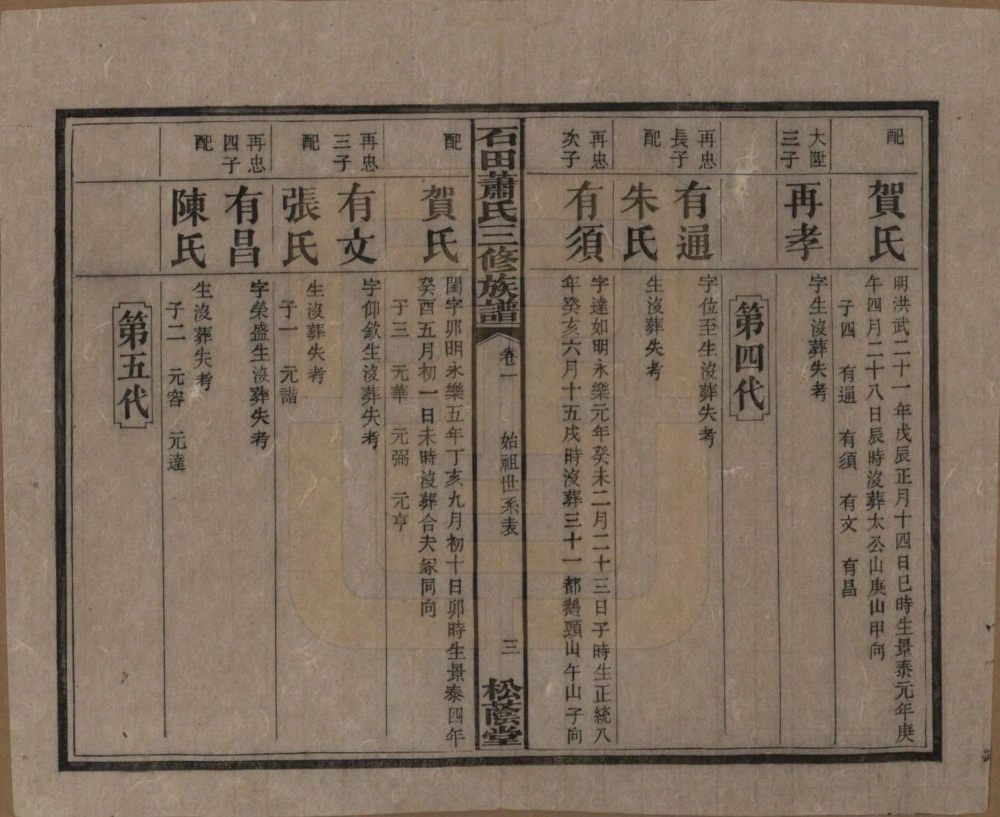 配
賀氏
明洪武二十一年戊辰正月十四日巳時生景泰元年庚
午四月二十八日辰時沒葬太公山庚山甲向
子四 有通 有須 有文 有昌
三子
再孝
字生沒葬失考
第四代
再忠
長子
有通
字位至生沒葬失考
配
朱氏
生沒葬失考
再忠
次子
有須
字達如明永樂元年癸未二月二十三日子時生正統八
年癸亥六月十五戌時沒葬三十一都鵝頸山午山子向
石田蕭氏三修族譜
卷一
始祖世系表
三
松蔭堂
配
賀氏
閨字卯明永樂五年丁亥九月初十日卯時生景泰四年
癸酉五月初一日未時沒葬合夫冢同向
子三 元華 元弼 元亨
再忠
三子
有文
字仰欽生沒葬失考
配
張氏
生沒葬失考
子一 元諧
再忠
四子
有昌
字榮盛生沒葬失考
配
陳氏
生沒葬失考
子二 元容 元達
第五代